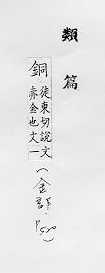 類篇
銅 徒東切說文
赤金也文一
(金部.